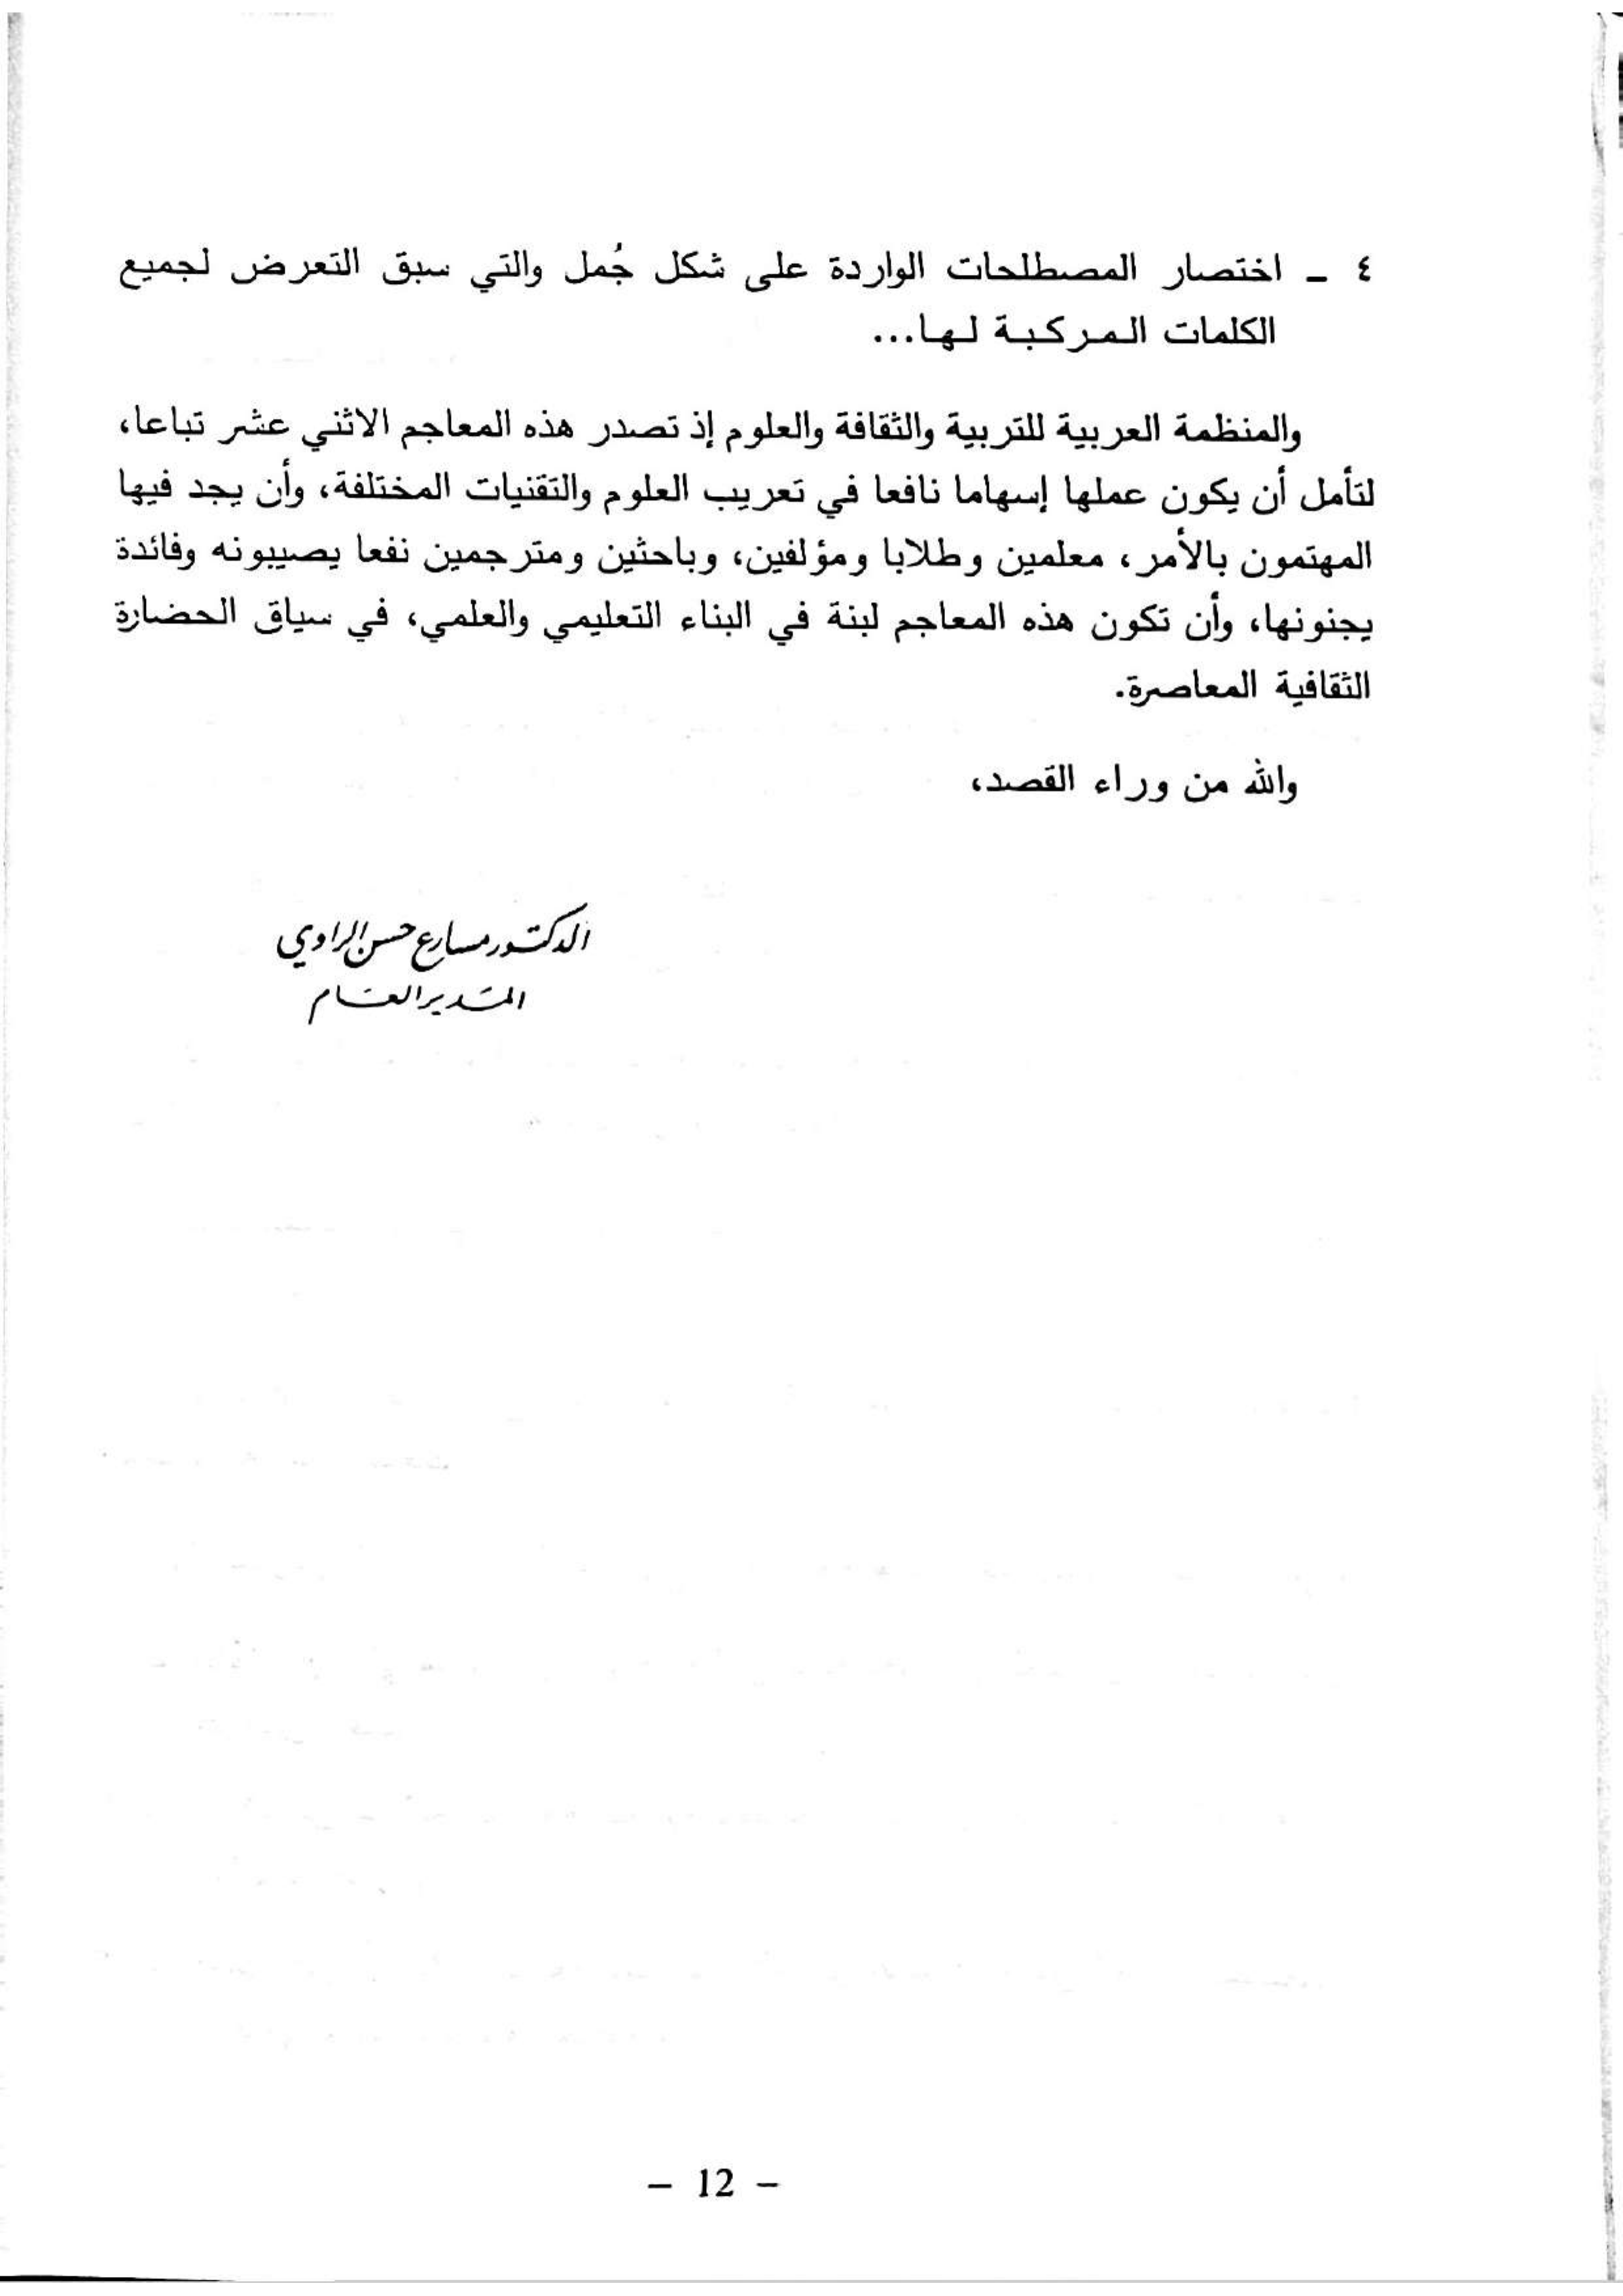 ٤ ـ اختصار المصطلحات الواردة على شكل جُمل والتي سبق التعرض لجميع
الكلمات المركبة لها...
والمنظمة العربية للتربية والثقافة والعلوم إذ تصدر هذه المعاجم الاثني عشر تباعا،
لتأمل أن يكون عملها إسهاما نافعا في تعريب العلوم والتقنيات المختلفة، وأن يجد فيها
المهتمون بالأمر، معلمين وطلابا ومؤلفين، وباحثين ومترجمين نفعا يصيبونه وفائدة
يجنونها، وأن تكون هذه المعاجم لبنة في البناء التعليمي والعلمي، في سياق الحضارة
الثقافية المعاصرة.
والله من وراء القصد،
الدكتور مسارع حسن الراوي
المدير العام
– 12 –